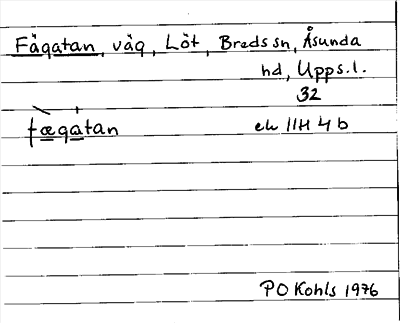 Fägatan, väg, Löt, Breds sn, Åsunda
hd, Upps. l.
32
fægatan
ek 11H 4 b
PO Kohls 1976